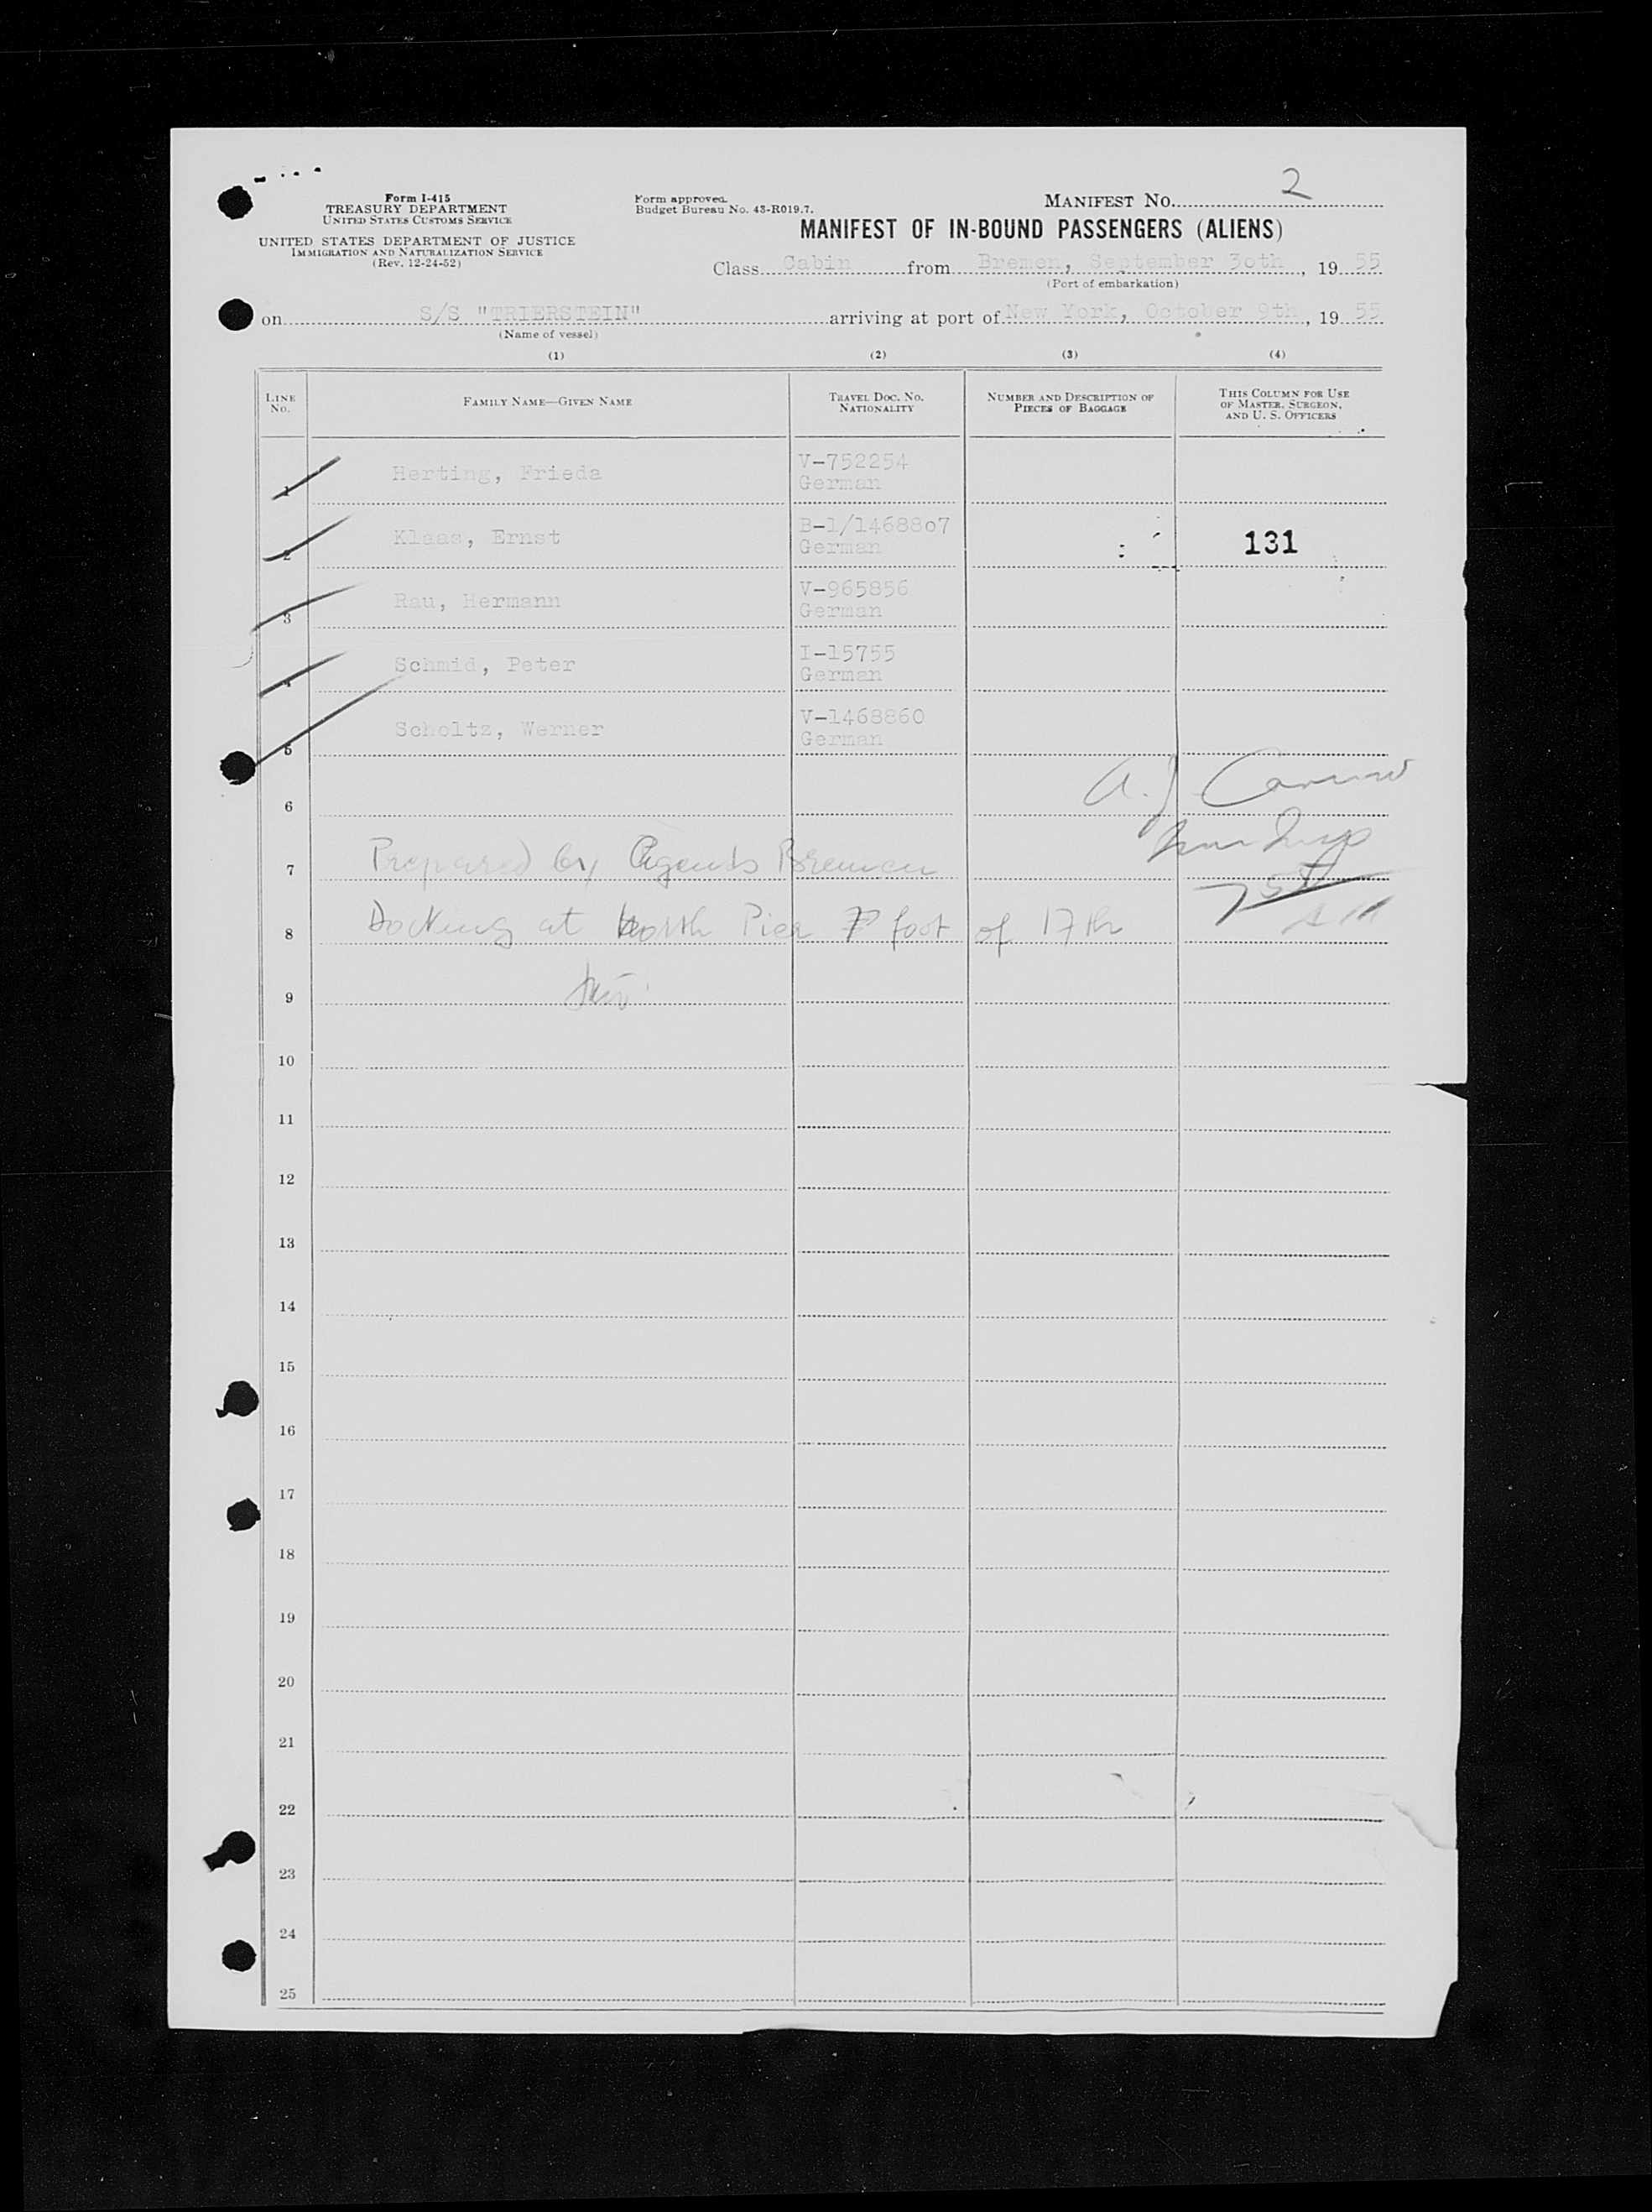 Form I-415
TREASURY DEPARTMENT
UNITED STATES CUSTOMS SERVICE
UNITED STATES DEPARTMENT OF JUSTICE
IMMIGRATION AND NATURALIZATION SERVICE
(Rev. 12-24-52)
Form approved.
Budget Bureau No. 43-R019.7.
MANIFEST NO. 2
MANIFEST OF IN-BOUND PASSENGERS (ALIENS)
Class Cabin from Bremen, September 30th, 19 55
(Port of embarkation)
on S/S "TRIERSTEIN" arriving at port of New York, October 9th, 19 55
(Name of vessel)
(1) (2) (3) (4)
LINE NO. FAMILY NAME—GIVEN NAME TRAVEL DOC. NO. NATIONALITY NUMBER AND DESCRIPTION OF PIECES OF BAGGAGE THIS COLUMN FOR USE OF MASTER, SURGEON, AND U. S. OFFICERS
1 Herting, Frieda V-752254 German
2 Klaas, Ernst B-1/1468807 German 131
3 Rau, Hermann V-965856 German
4 Schmid, Peter I-15755 German
5 Scholtz, Werner V-1468860 German
6
7 Prepared by Agents Bremen
8 Docking at North Pier 7 foot of 17th
9
10
11
12
13
14
15
16
17
18
19
20
21
22
23
24
25